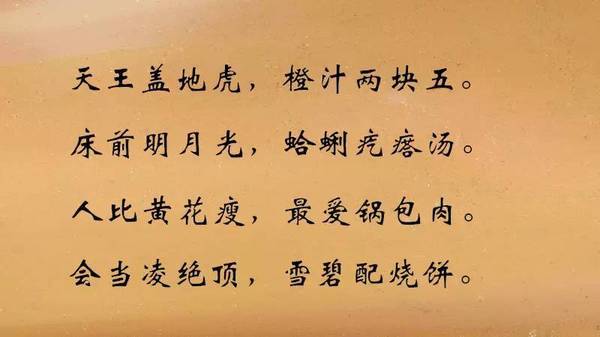 天王盖地虎，橙汁两块五。
床前明月光，蛤蜊疙瘩汤。
人比黄花瘦，最爱锅包肉。
会当凌绝顶，雪碧配烧饼。